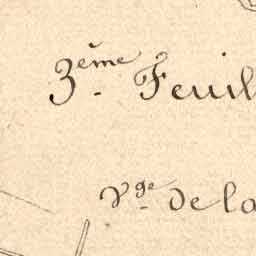 3ème Feuil
Vge de la